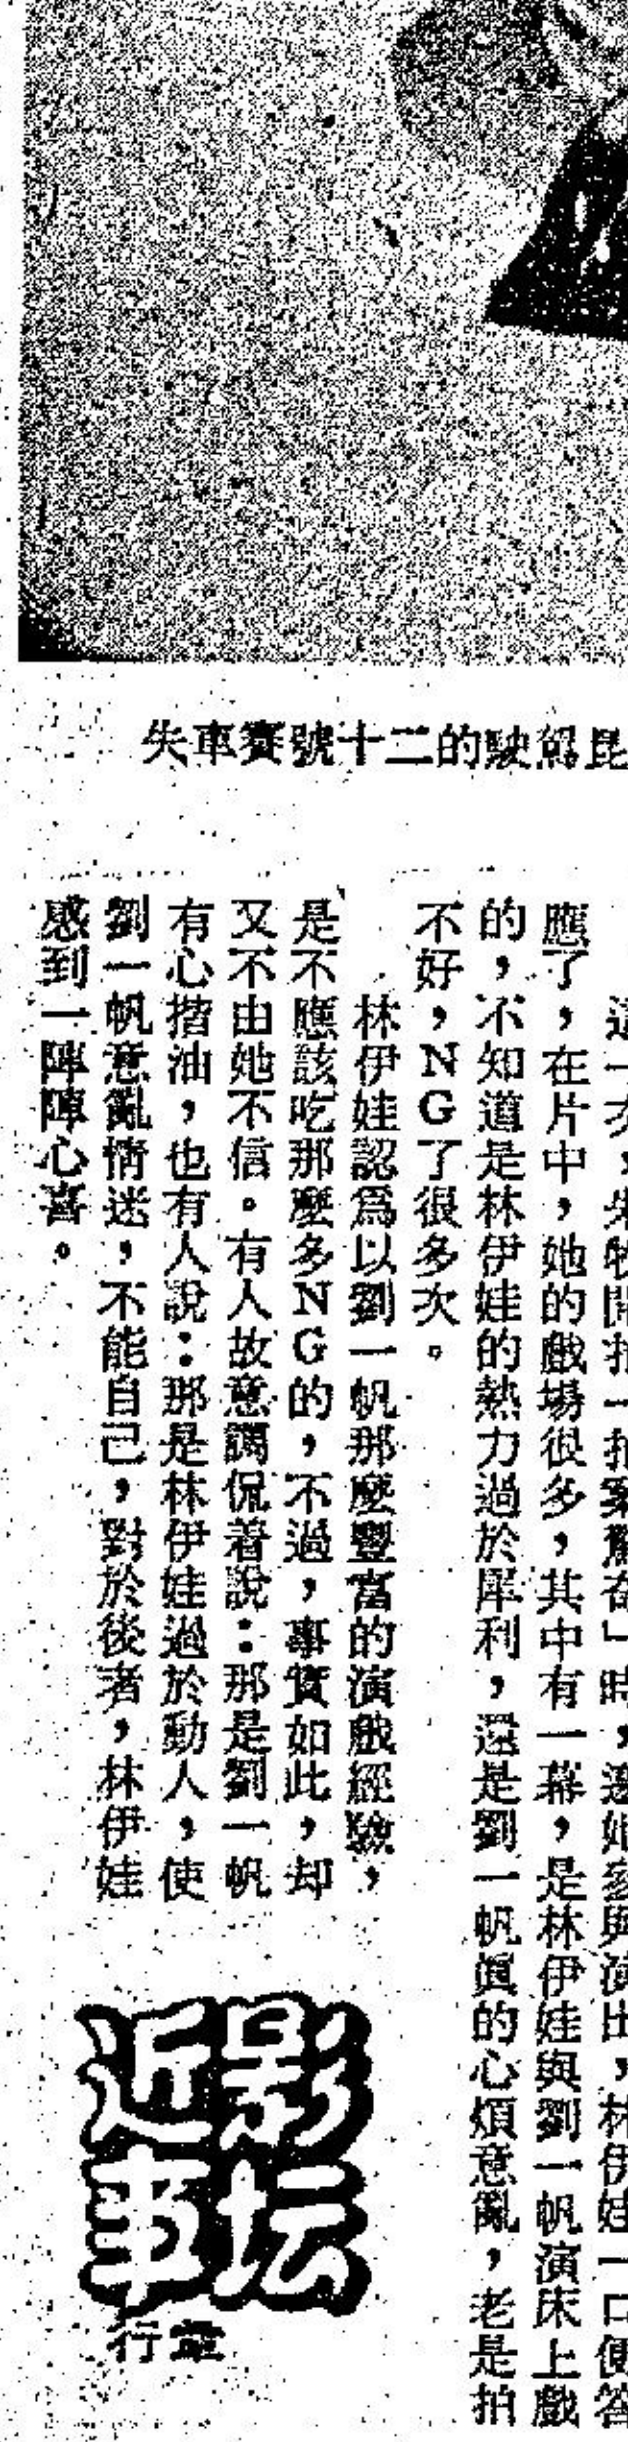 昆駕駛的二十號賽車失
這一次，朱牧開拍一拍案驚奇」時，邀她參與演出，林伊娃一口便答
應了，在片中，她的戲場很多，其中有一幕，是林伊娃與劉一帆演床上戲
的，不知道是林伊娃的熱力過於犀利，還是劉一帆眞的心煩意亂，老是拍
不好，NG了很多次。
林伊娃認爲以劉一帆那麼豐富的演戲經驗，
是不應該吃那麼多NG的，不過，事實如此，却
又不由她不信。有人故意謿侃着說：那是劉一帆
有心揩油，也有人說：那是林伊娃過於動人，使
劉一帆意亂情迷，不能自己，對於後者，林伊娃
感到一陣陣心喜。
影坛
近事
行